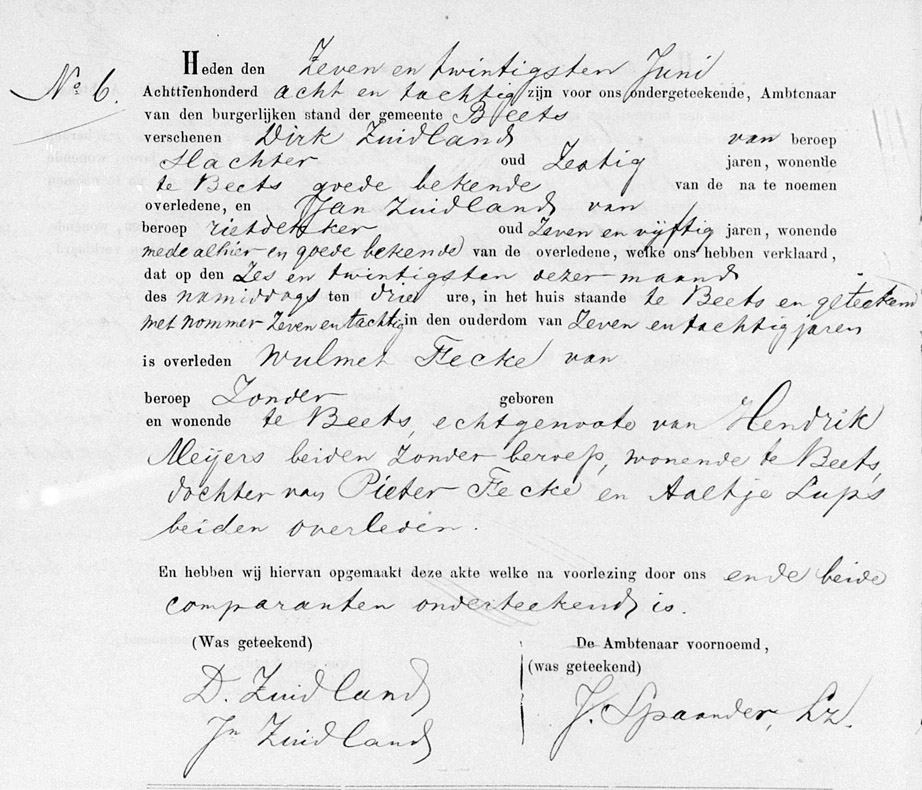 No. 6.
Heden den Zeven en twintigsten Juni
Achttienhonderd acht en tachtig zijn voor ons ondergeteekende, Ambtenaar
van den burgerlijken stand der gemeente Beets
verschenen Dirk Zuidland van beroep
Slachter oud Zestig jaren, wonende
te Beets goede bekende van de na te noemen
overledene, en Jan Zuidland van
beroep rietdekker oud Zeven en vijftig jaren, wonende
mede alhier en goede bekende van de overledene, welke ons hebben verklaard,
dat op den Zes en twintigsten dezer maand
des namiddags ten drie ure, in het huis staande te Beets en geteekend
met nommer Zeven en tachtig in den ouderdom van Zeven en tachtig jaren
is overleden Wulmet Fecke van
beroep Zonder geboren
en wonende te Beets, echtgenoote van Hendrik
Meijers beiden Zonder beroep, wonende te Beets,
dochter van Pieter Fecke en Aaltje Lups
beiden overleden.
En hebben wij hiervan opgemaakt deze akte welke na voorlezing door ons ende beide
comparanten onderteekend is.
(Was geteekend) De Ambtenaar voornoemd,
(was geteekend)
D. Zuidland
Jn Zuidland
J. Spaander, Lz.